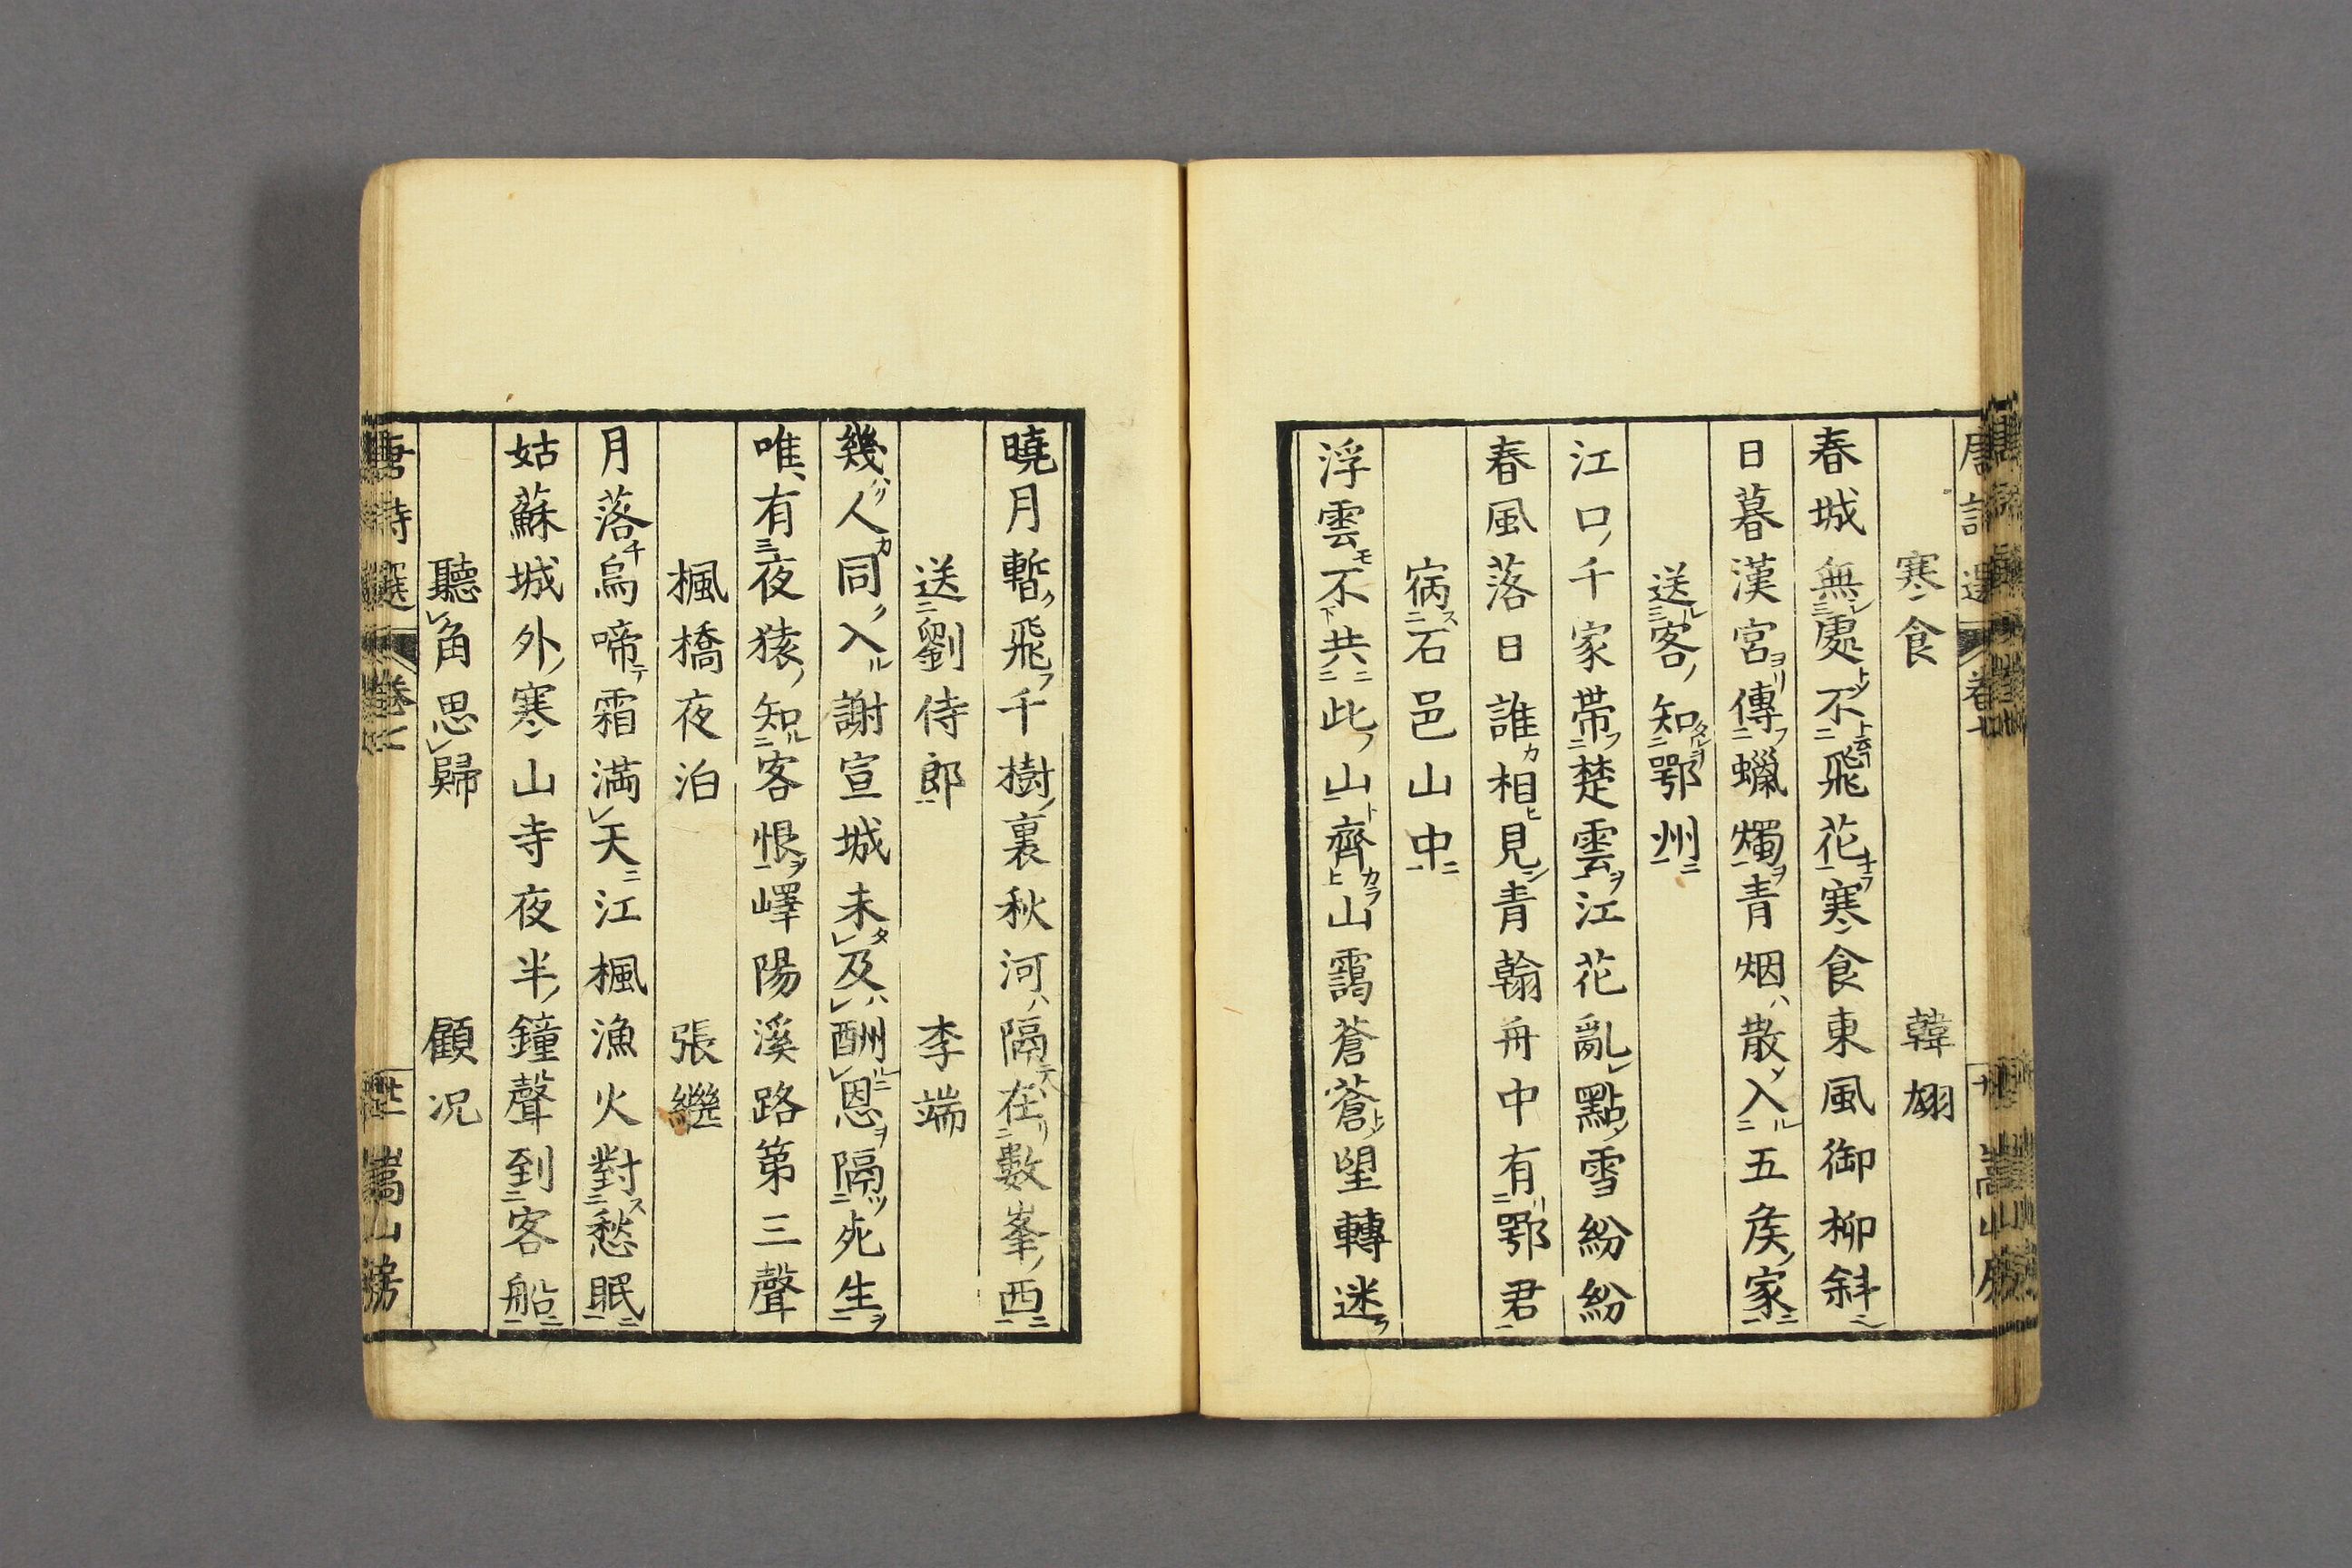 寒食 韓翃
春城無處不飛花寒食東風御柳斜
日暮漢宮傳蠟燭青烟散入五矦家
送客知鄂州
江口千家帶楚雲江花亂點雪紛紛
春風落日誰相見青翰舟中有鄂君
宿石邑山中
浮雲不共此山齊山靄蒼蒼望轉迷
曉月暫飛千樹裏秋河隔在數峯西
送劉侍郎 李端
幾人同入謝宣城未及酬恩隔死生
唯有夜猿知客恨嶧陽溪路第三聲
楓橋夜泊 張繼
月落烏啼霜滿天江楓漁火對愁眠
姑蘇城外寒山寺夜半鐘聲到客船
聽角思歸 顧况
唐詩選 卷七 嵩山房